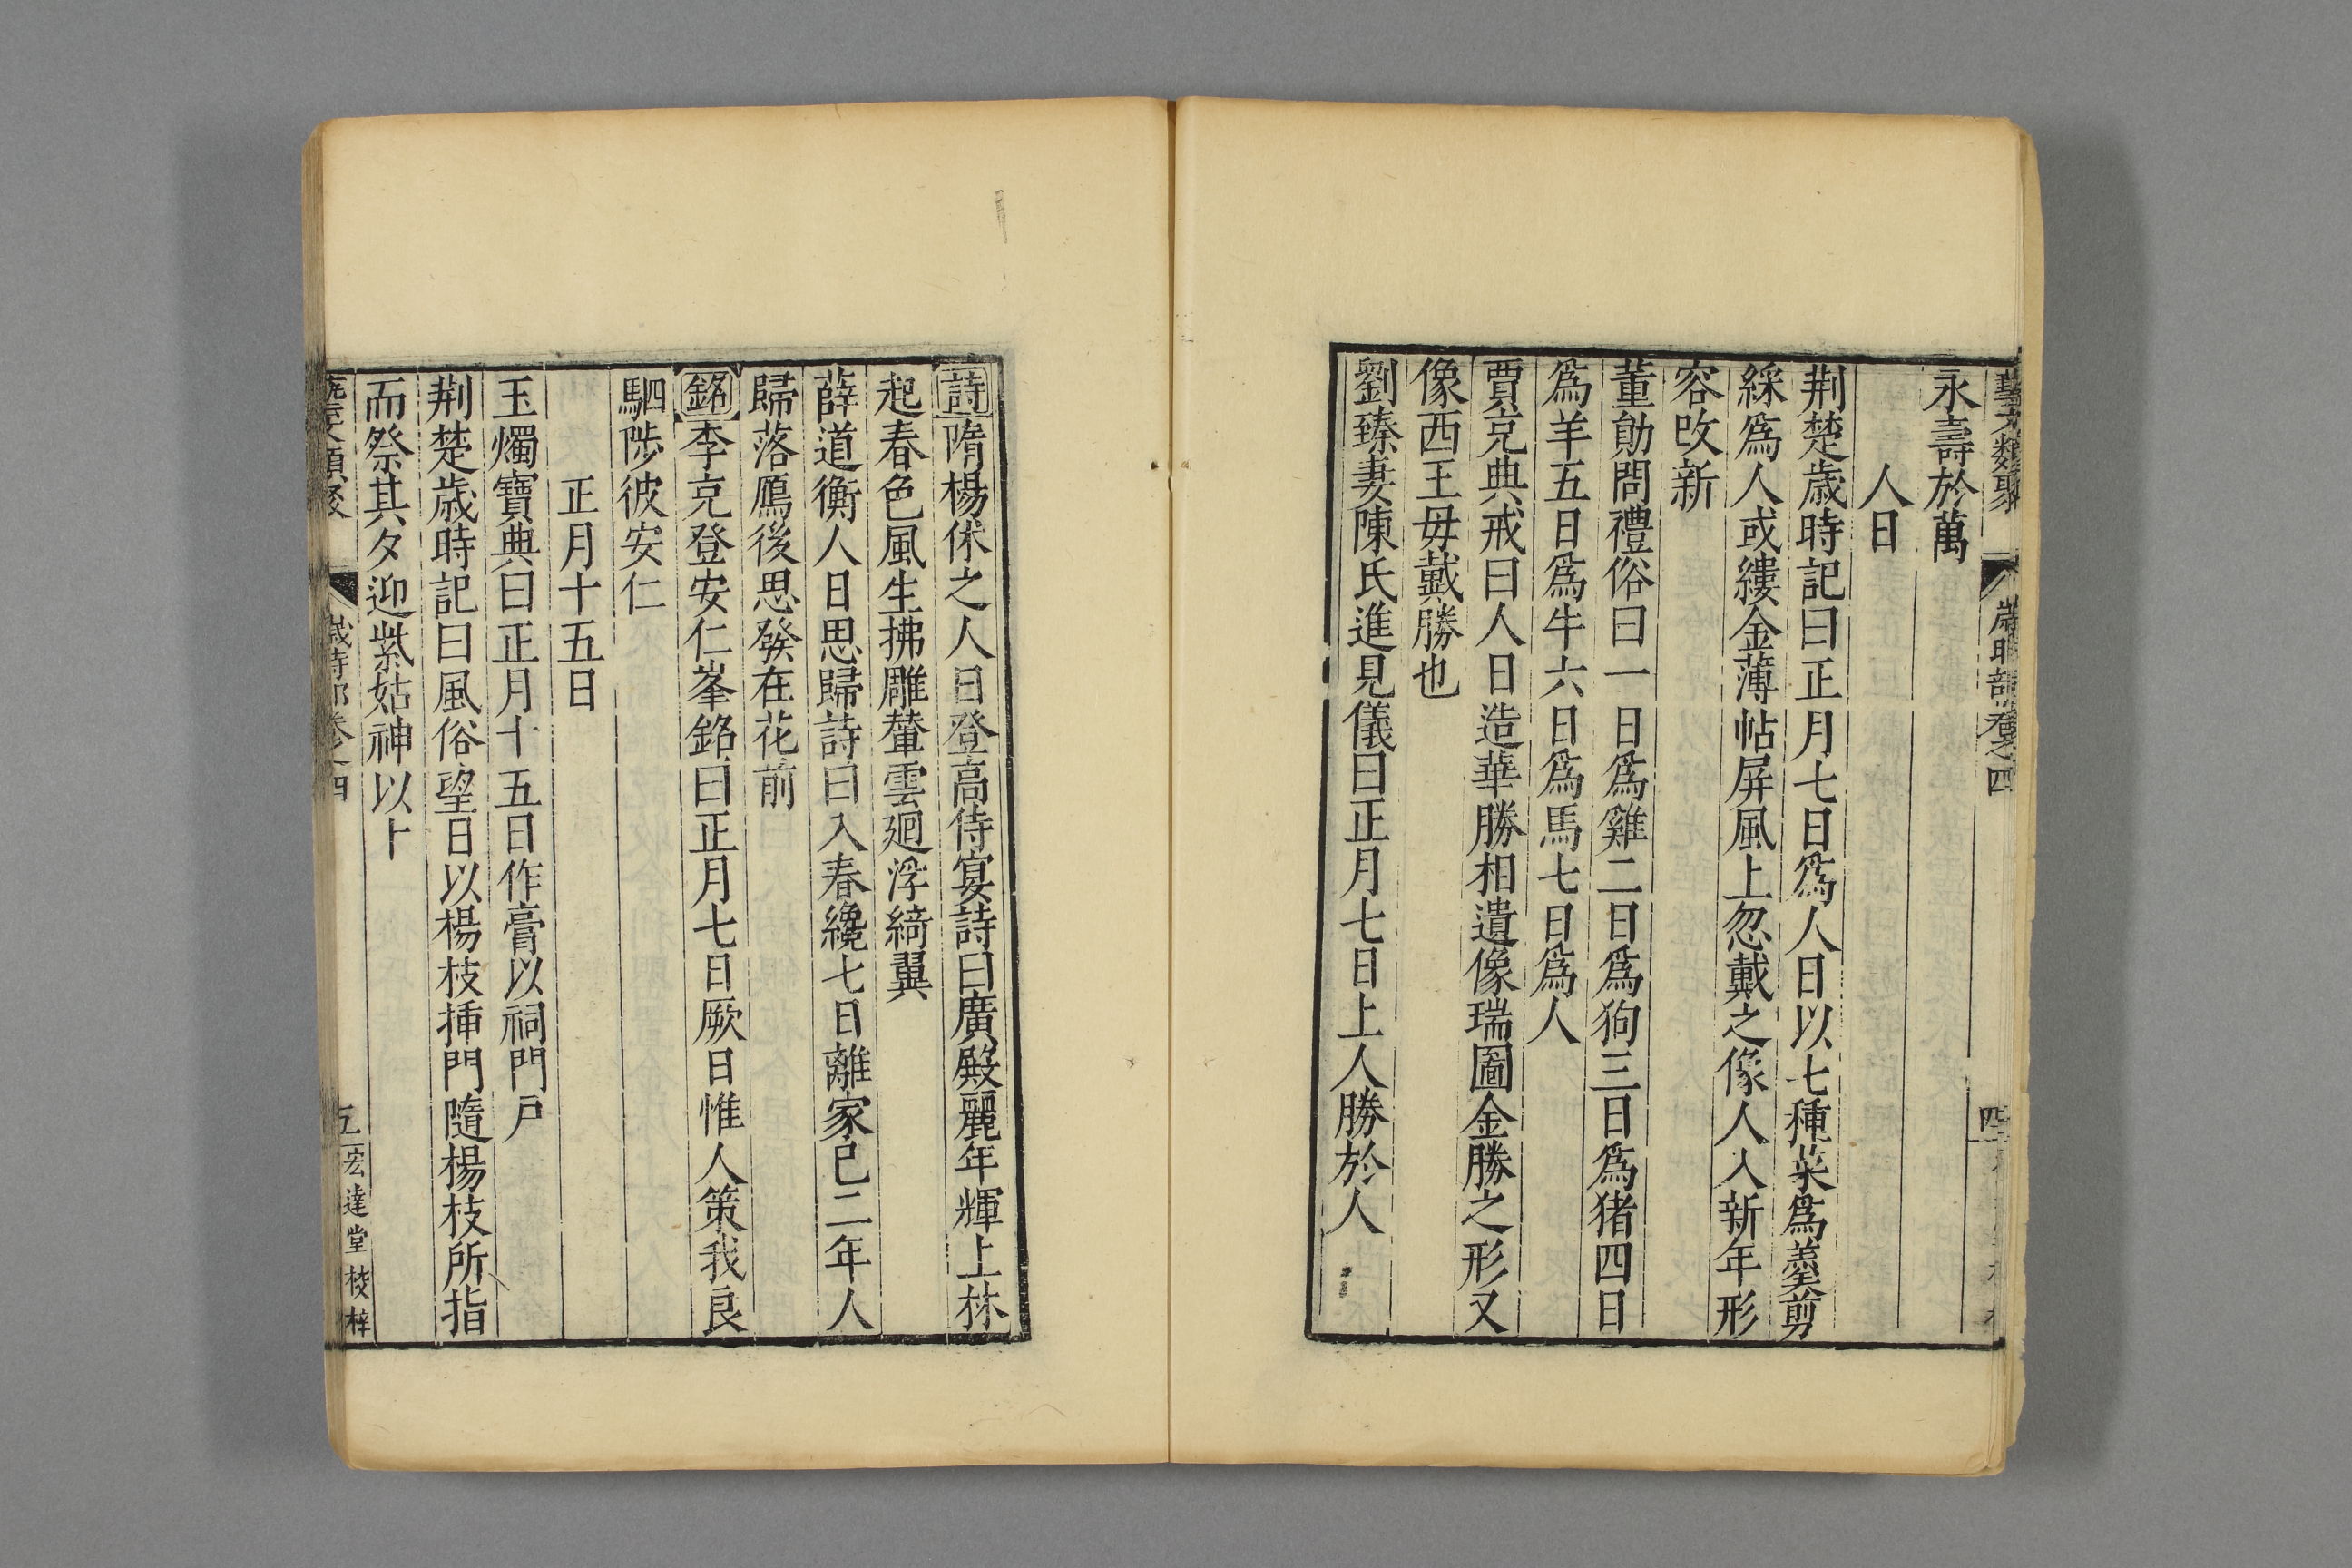 藝文類聚 歲時部卷之四 四
永壽於萬
人日
荆楚歲時記曰正月七日爲人日以七種菜爲羹剪
綵爲人或縷金薄帖屏風上忽戴之像人入新年形
容改新
董勛問禮俗曰一日爲雞二日爲狗三日爲猪四日
爲羊五日爲牛六日爲馬七日爲人
賈充典戒曰人日造華勝相遺像瑞圖金勝之形又
像西王毋戴勝也
劉臻妻陳氏進見儀曰正月七日上人勝於人
詩隋楊休之人日登高侍宴詩曰廣殿麗年輝上林
起春色風生拂雕輦雲廻浮綺翼
薛道衡人日思歸詩曰入春纔七日離家已二年人
歸落鴈後思發在花前
銘李充登安仁峯銘曰正月七日厥日惟人策我良
駟陟彼安仁
正月十五日
玉燭寶典曰正月十五日作膏以祠門戸
荆楚歲時記曰風俗望日以楊枝挿門隨楊枝所指
而祭其夕迎紫姑神以卜
藝文類聚 歲時部卷之四 五 宏達堂校梓